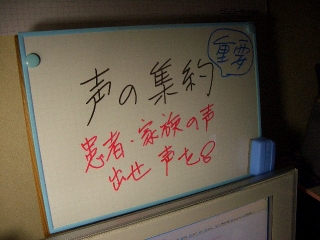 重要
声の集約
患者・家族の声
出せ 声を8